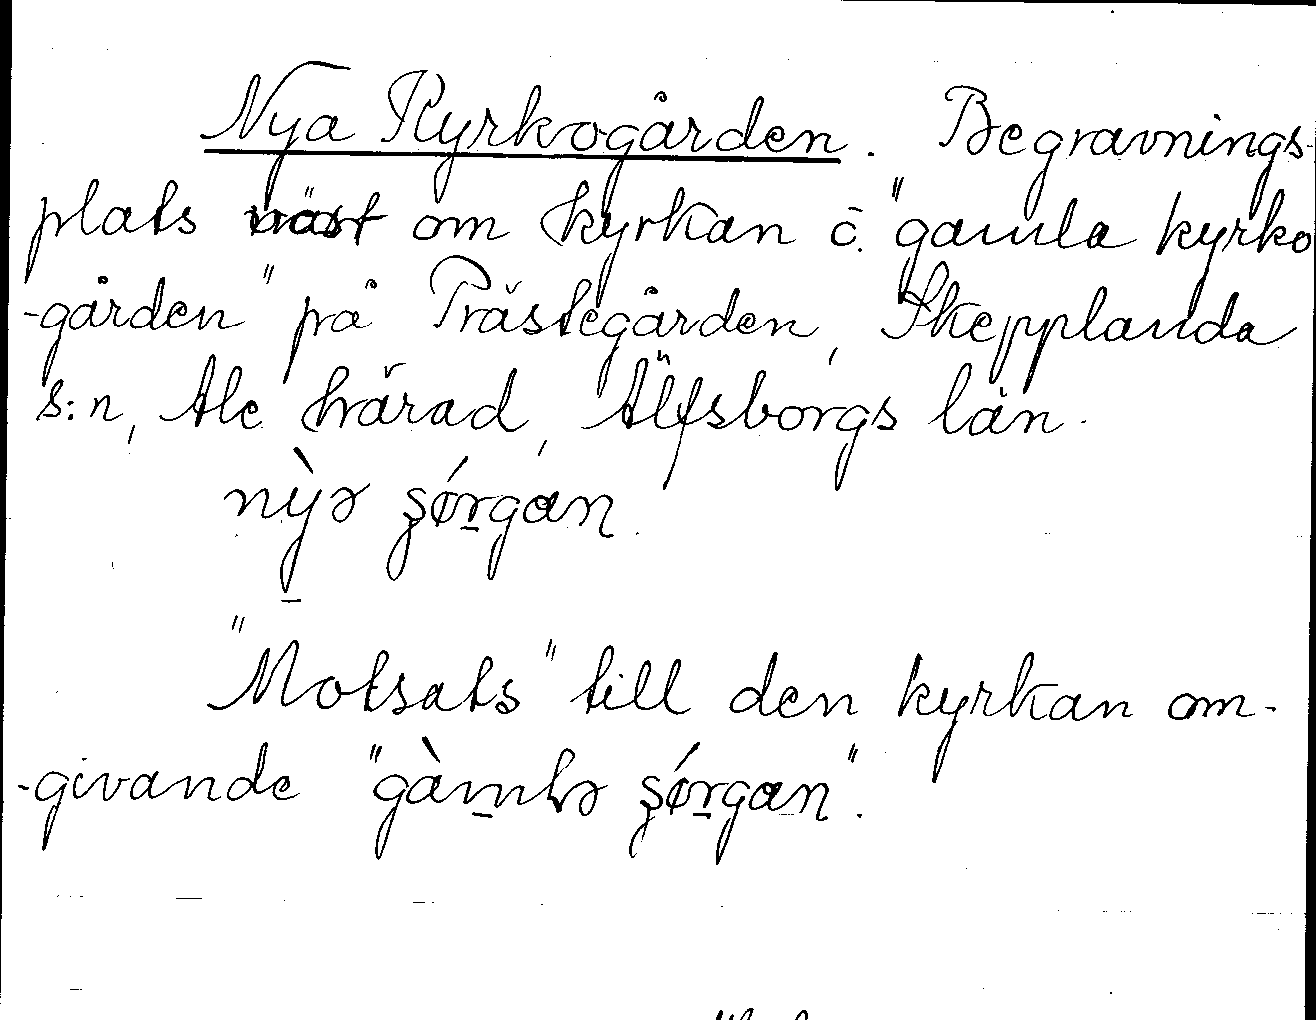 Nya Kyrkogården. Begravnings-
plats väst om kyrkan o. "gamla kyrko
-gården" på Prästegården, Skepplanda
s:n, Ale härad, Älfsborgs län.
nỳ̱ə ʂǿṟgan.
"Motsats" till den kyrkan om-
-givande "gàm̱lə ʂǿṟgan".